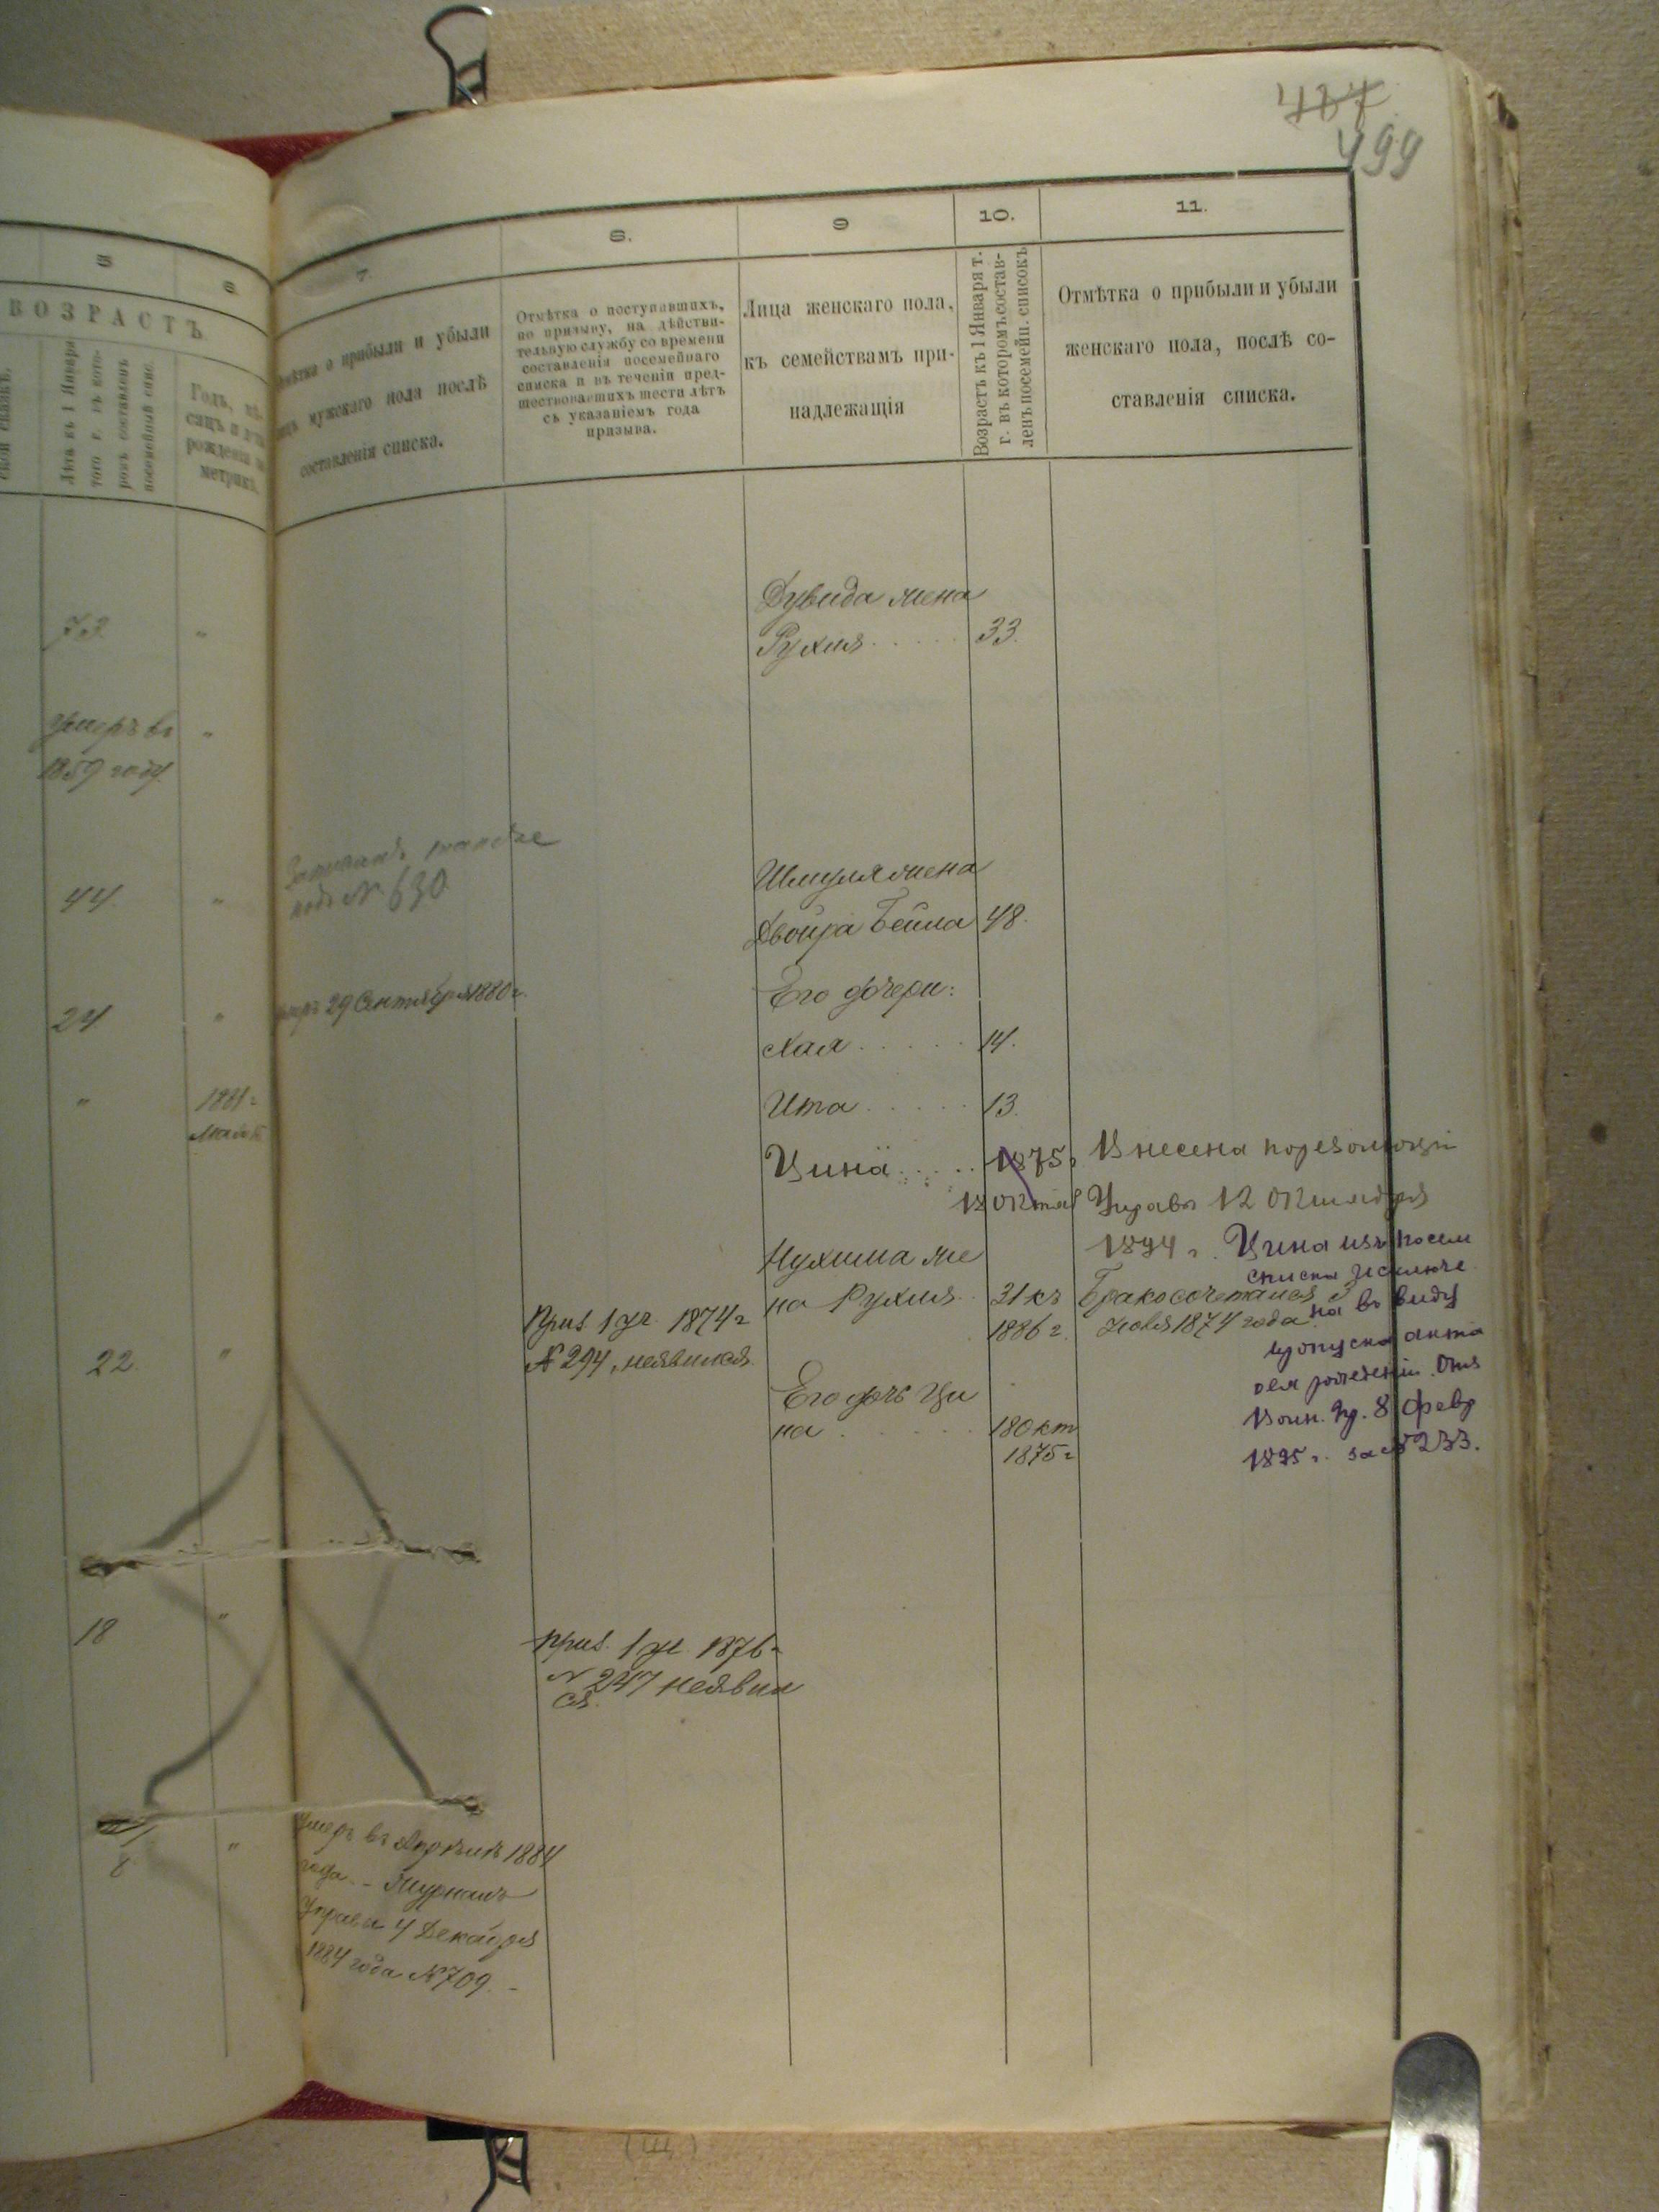 487
499
5
6
ВОЗРАСТЪ
Лѣтъ къ 1 Января
того г. въ кото-
ромъ составленъ
посемейный спис.
Годъ, мѣ-
сяцъ и день
рожденія по
метрикѣ.
73
умеръ въ
1859 году
44
24
1881 г.
22
18
8
7.
8.
9
10.
11.
Отмѣтка о прибыли и убыли
лицъ мужскаго пола послѣ
составленія списка.
Отмѣтка о поступившихъ,
по призыву, на дѣйстви-
тельную службу со времени
составленія посемейнаго
списка и въ теченіи пред-
шествовавшихъ шести лѣтъ
съ указаніемъ года
призыва.
Лица женскаго пола,
къ семействамъ при-
надлежащія
Возрастъ къ 1 Января т.
г. въ которомъ состав-
ленъ посемейн. списокъ
Отмѣтка о прибыли и убыли
женскаго пола, послѣ со-
ставленія списка.
Дувида жена
Рухля 33.
Записанъ также
подъ № 630
Шмуля жена
Двойра Бейла 48.
умеръ 29 Сентября 1880 г.
Его дочери:
Хая 14.
Ита 13.
Цина 1875 г. Внесена по резолюціи
18 Октяб Управы 12 Октября
1894 г. Цина изъ посем
списка исключе
на въ виду
пропуска акта
о ея рожденіи. Отн
Воин. Пр. 8 Февр
1895 г. за № 233.
Нухима же
на Рухля 31 къ
1886 г.
Бракосочетался 3
1874 года
Приз. 1 уч. 1874 г
№ 294, неявился.
Его дочь Ци
на 18 Окт
1875 г
Приз. 1 уч. 1876 г
№ 247 неявил
ся.
Умеръ въ Апрѣлѣ 1884
года. - Журналъ
Управы 4 Декабря
1884 года № 709. -